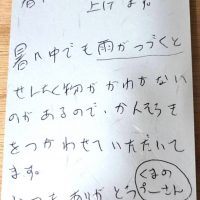 上げます。
暑い中でも雨がつづくと
せんたく物がかわかない
のがあるので、かんそうき
をつかわせていただいて
ます。
いつもありがとう
くまの
プーさん